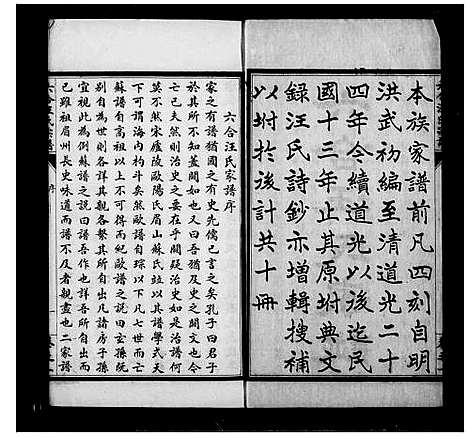 本族家譜前凡四刻自明
洪武初編至清道光二十
四年今續道光以後迄民
國十三年止其原坿典文
錄汪氏詩鈔亦增輯搜補
以坿於後計共十冊
六合汪氏家譜序
家之有譜猶國之有史先儒已言之矣孔子曰君子
於其所不知蓋闕如也又曰吾猶及史之闕文也今
亡已夫然則治史之要在乎闕疑治史如是治譜何
莫不然宋廬陵歐陽氏眉山蘇氏竝以其譜學式天
下可謂海內杓斗矣然歐譜自琮以下凡七世而亡
蘇譜自高祖以上不可得而紀歐譜之說曰玄孫既
宜視此為例蘇譜之說曰譜吾作也詳吾所自出而
已雖祖眉州長史味道而譜不及者親盡也二家譜
六合汪氏家譜
序